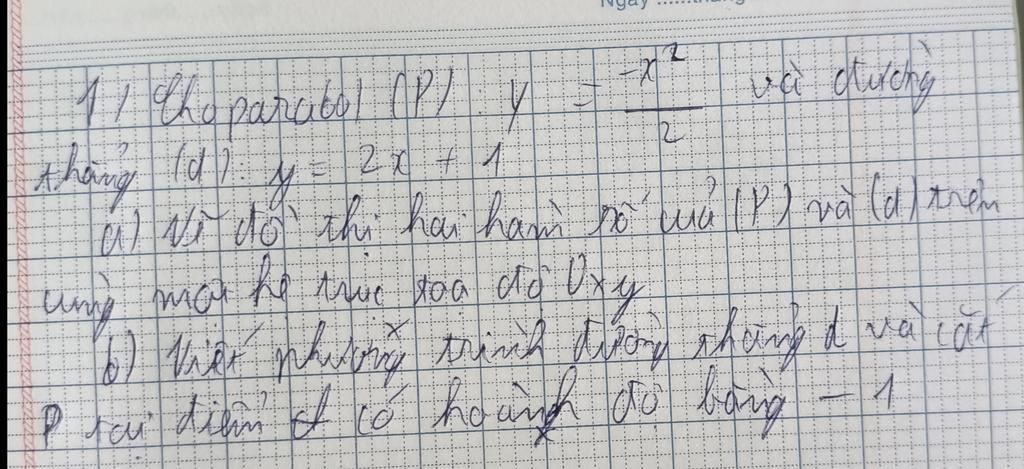 Ngày ......tháng
1) Cho parabol (P): y = -x²/2 và đường
thẳng (d): y = 2x + 1
a) Vẽ đồ thị hai hàm số của (P) và (d) trên
cùng một hệ trục toạ độ Oxy
b) Viết phường trình đường thẳng d và cắt
P tại điểm A có hoành độ bằng - 1